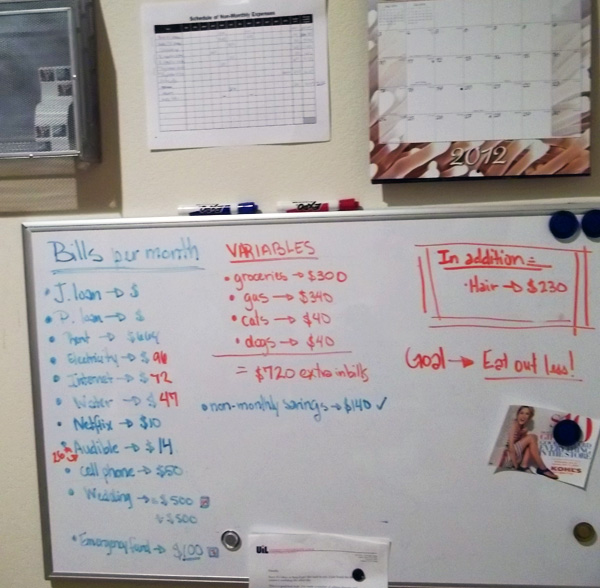 Schedule of Non-Monthly Expenses
2012
EXPO
EXPO
Bills per month
• J. loan → $
• P. loan → $
• Rent → $664
• Electricity → $ 96
• Internet → $ 72
• Water → $ 47
• Netflix → $10
• Audible → $ 14
• Cell phone → $50
• Wedding → $500
$500
• Emergency fund → $100
VARIABLES
• groceries → $300
• gas → $340
• cats → $40
• dogs → $40
= $720 extra in bills
• non-monthly savings → $140 ✓
In addition =
• Hair → $230
Goal → Eat out less!
$10
IN THE STORE
KOHL'S
UiL